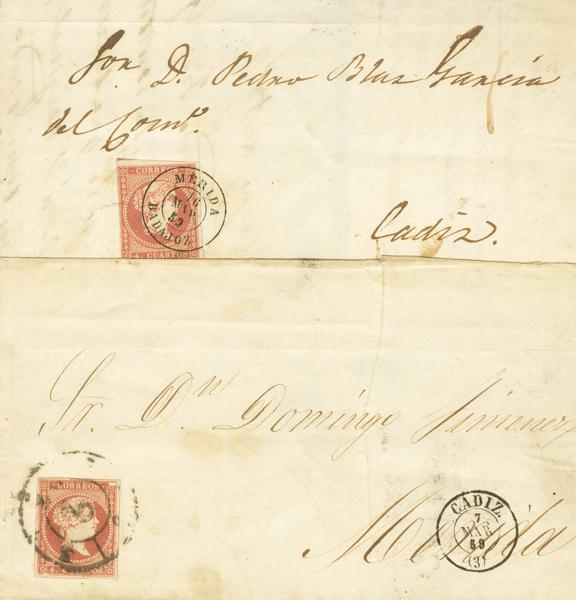 Sor. D. Pedro Blas Garcia
del Como.
CORREOS
4 CUARTOS
MERIDA
MAR
59
BADAJOZ
Cadiz.
Sr. Dn Domingo Jimenez
CORREOS
CADIZ.
7
MAR
59
(3)
Merida